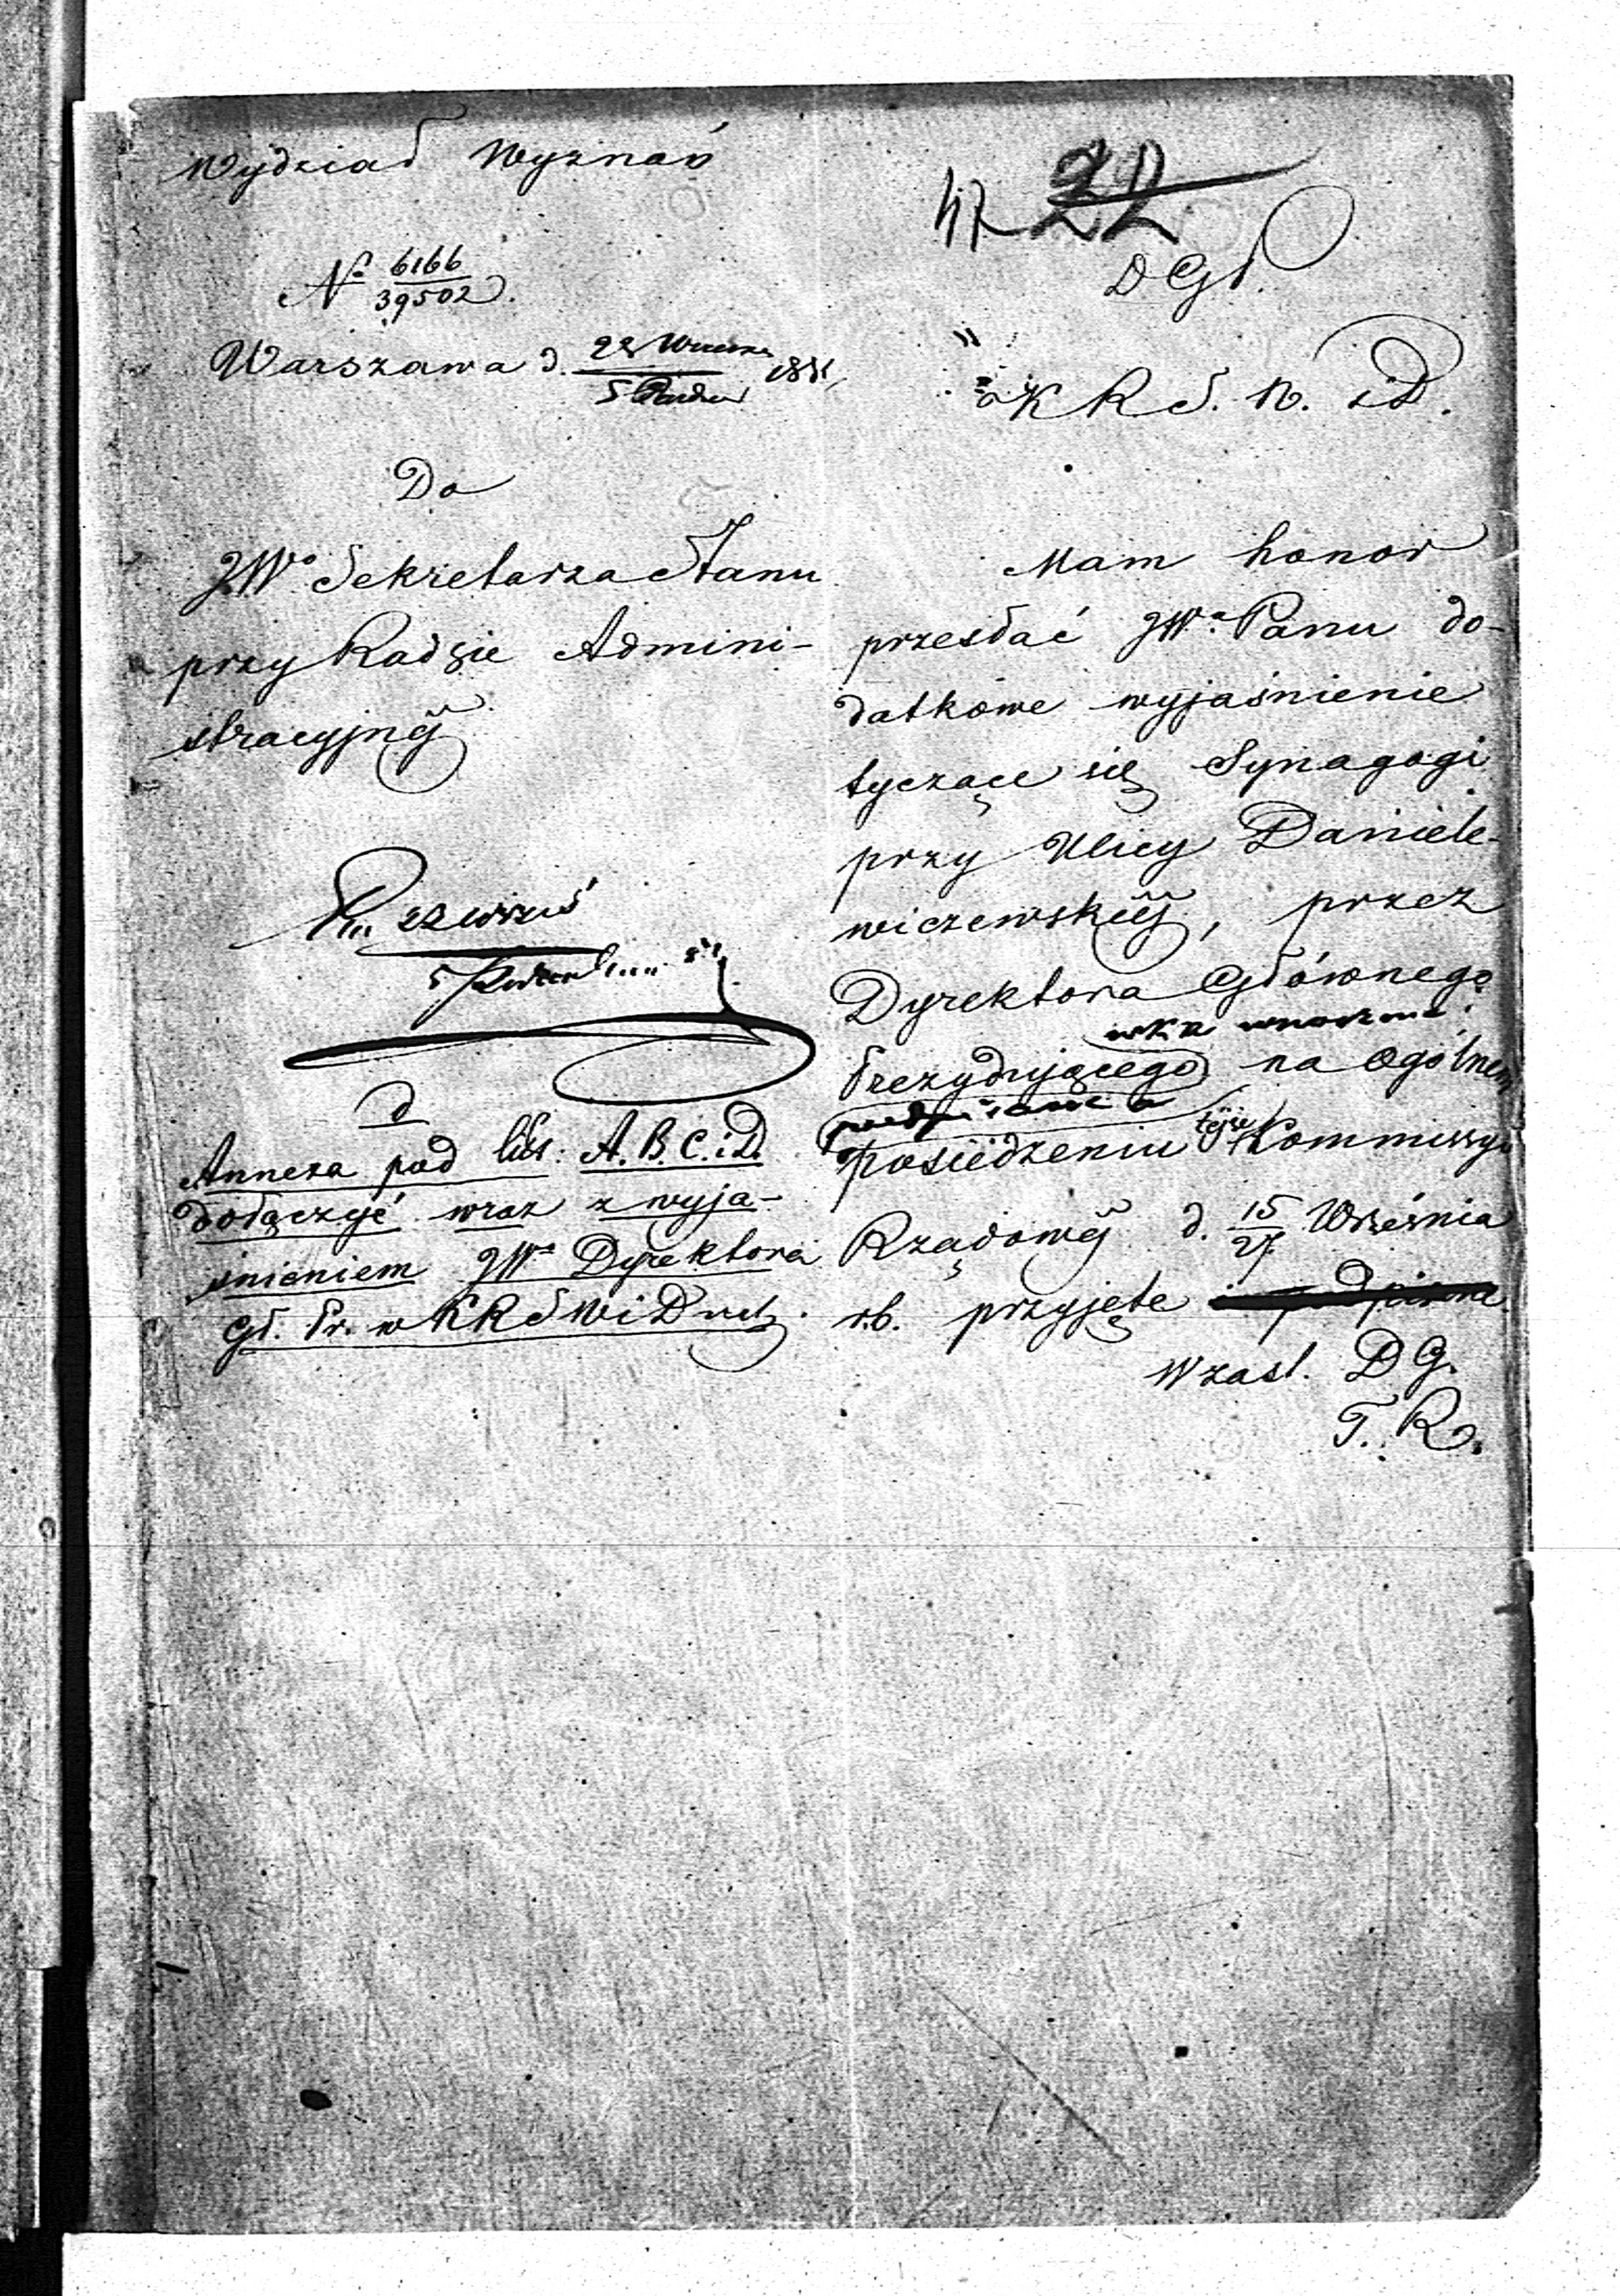 Wydział Wyznań
47 22
DGł.
N° 6166/39502.
Warszawa d. 23 Wrześ /5 Paźdz 1851
KRS. W. iD.
Do
JW° Sekretarza Stanu
przy Radzie Admini-
stracyjnéj
23 Wrześ
5 Październ
d
Annexa pod lit: A. B. C. i D.
dołączyć wraz z wyja-
śnieniem JW° Dyrektora
Gł. Pr. w KRSWiD
Mam honor
przesłać JW° Panu do-
datkowe wyjaśnienie
tyczące się Synagogi
przy Ulicy Daniele-
wiczewskiéj, przez
Dyrektora Głównego
wnoszone
Prezydującego na Ogólnem
podpisane a
posiedzeniu téjże Kommissyi
Rządowéj d. 15/27 Września
r.b. przyjęte i podpisane
W zast. DG.
T. R.